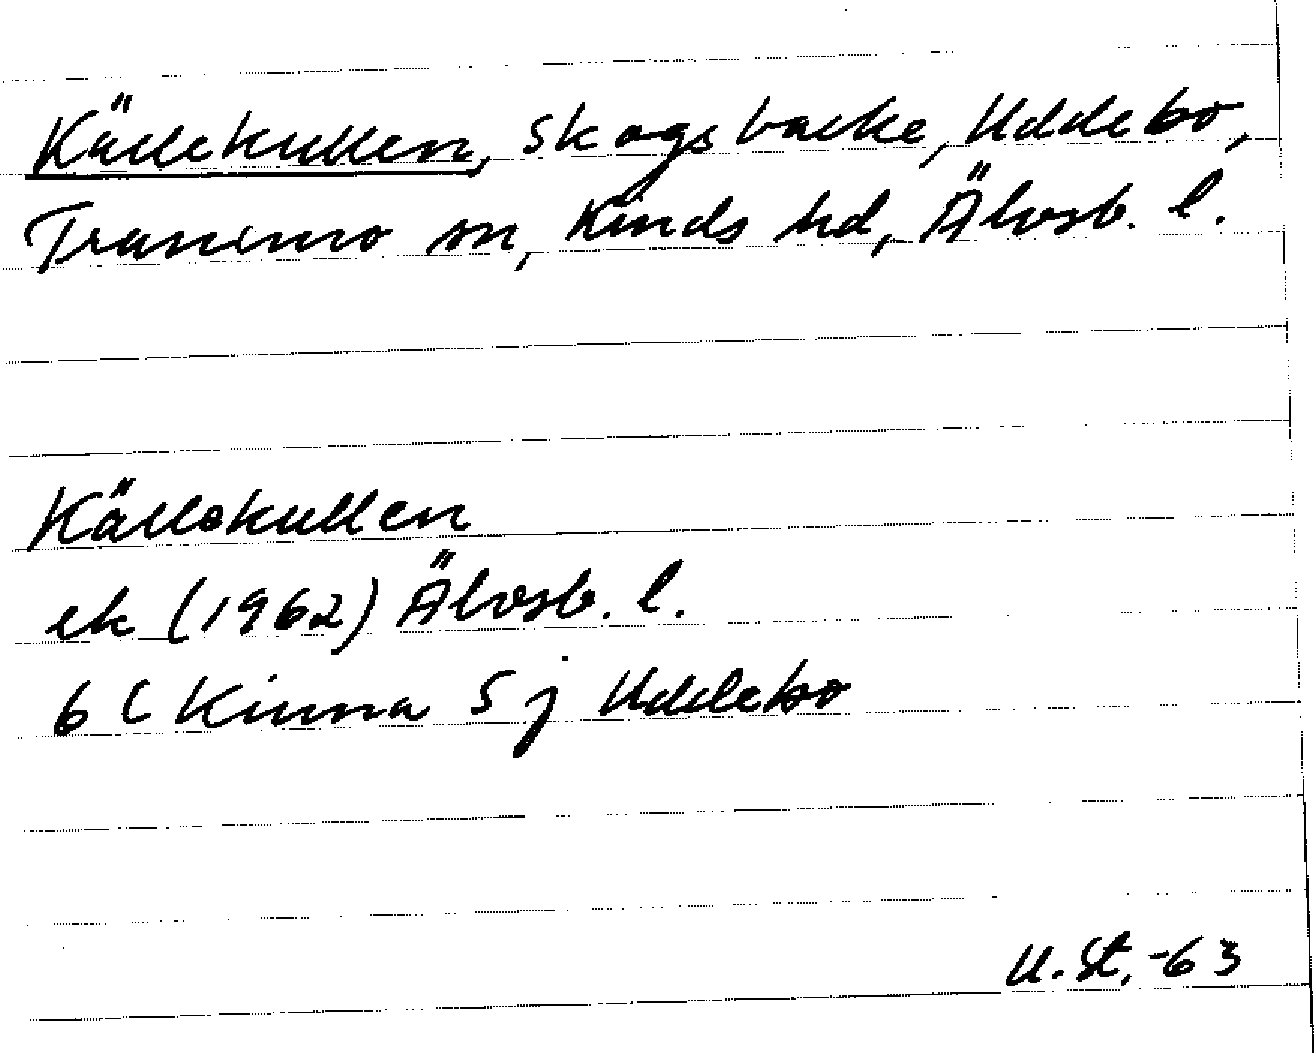 Källekullen, Skogsbacke, Uddebo,
Tranemo sn, Kinds hd, Älvsb. l.
Källekullen
ek (1962) Älvsb. l.
6 C Kinna S j Uddebo
U. St. -63